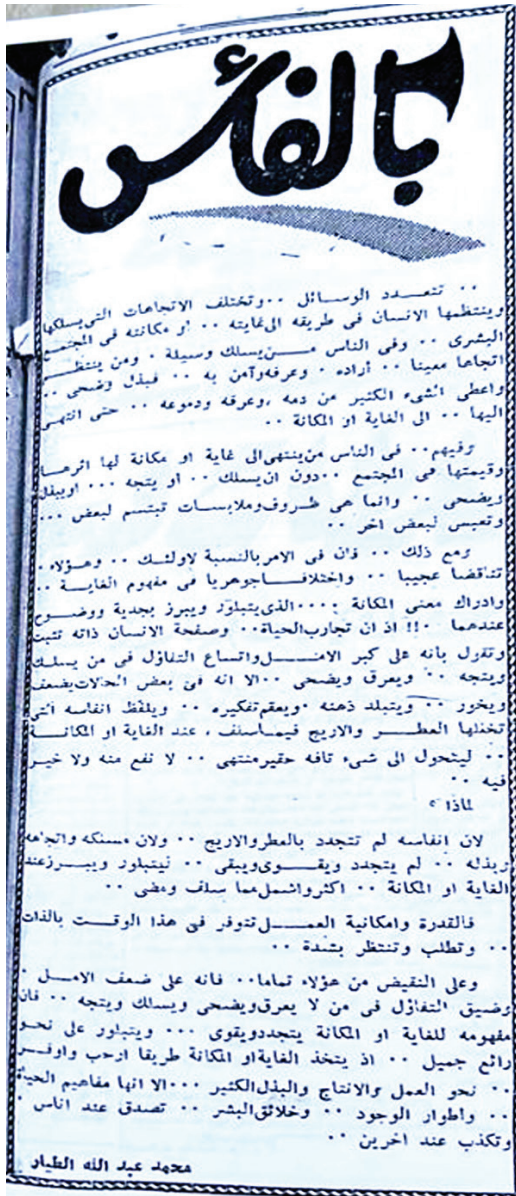 بالفأس
.. تتعدد الوسائل .. وتختلف الاتجاهات التي يسلكها
وينتظمها الانسان فى طريقه الى غايته .. أو مكانته فى المجتمع
البشرى .. وفى الناس من يسلك وسيلة . ومن ينتظم
اتجاها معينا .. أراده . وعرفه وآمن به .. فبذل وضحى ..
واعطى الشىء الكثير من دمه ، وعرقه ودموعه .. حتى انتهى
اليها .. الى الغاية او المكانة ..
وفيهم .. فى الناس من ينتهى الى غاية او مكانة لها اثرها
وقيمتها فى المجتمع .. دون ان يسلك .. أو يتجه ... او يبذل
ويضحى .. وانما هى ظروف وملابسات تبتسم لبعض ...
وتعبس لبعض اخر ..
ومع ذلك .. فان فى الامر بالنسبة لاولئك .. وهؤلاء .
تناقضا عجيبا .. واختلافا جوهريا فى مفهوم الغاية ..
وادراك معنى المكانة .... الذى يتبلور ويبرز بجدية ووضوح
عندهما ..!! اذ ان تجارب الحياة .. وصفحة الانسان ذاته تثبت
وتقول بانه على كبر الامل واتساع التفاؤل فى من يسلك
ويتجه .. ويعرق ويضحى .. الا انه فى بعض الحالات يضعف
ويخور .. ويتبلد ذهنه . ويعقم تفكيره .. ويلفظ انفاسه التى
تخللها العطر والاريج فيما سلف ، عند الغاية او المكانة
.. ليتحول الى شىء تافه حقير منتهى .. لا نفع منه ولا خير
فيه ..
لماذا ؟
لان انفاسه لم تتجدد بالعطر والاريج .. ولان مسلكه واتجاهه
وبذله .. لم يتجدد ويقوى ويبقى .. ليتبلور ويبرز عند
الغاية او المكانة .. اكثر واشمل مما سلف ومضى ..
فالقدرة وامكانية العمل تتوفر فى هذا الوقت بالذات
.. وتطلب وتنتظر بشدة ..
وعلى النقيض من هؤلاء تماما .. فانه على ضعف الامل .
وضيق التفاؤل فى من لا يعرق ويضحى ويسلك ويتجه .. فان
مفهومه للغاية او المكانة يتجدد ويقوى ... ويتبلور على نحو
رائع جميل .. اذ يتخذ الغاية او المكانة طريقا ارحب واوفر
.. نحو العمل والانتاج والبذل الكثير ... الا انها مفاهيم الحياة
.. واطوار الوجود .. وخلائق البشر .. تصدق عند اناس .
وتكذب عند اخرين ..
محمد عبد الله الطيار